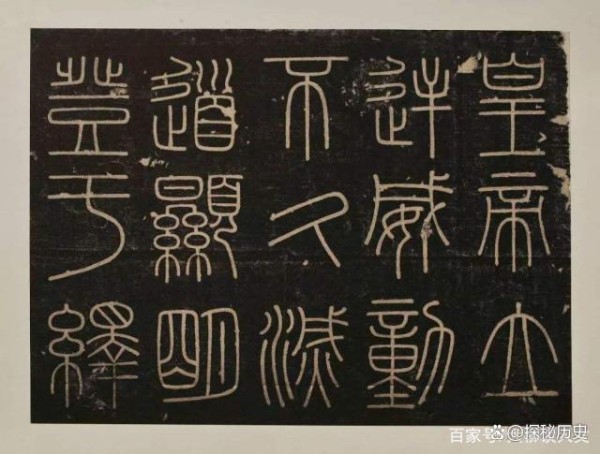 皇帝立
逆威動
不久滅
道顯明
登于繹
百家号
@探秘历史